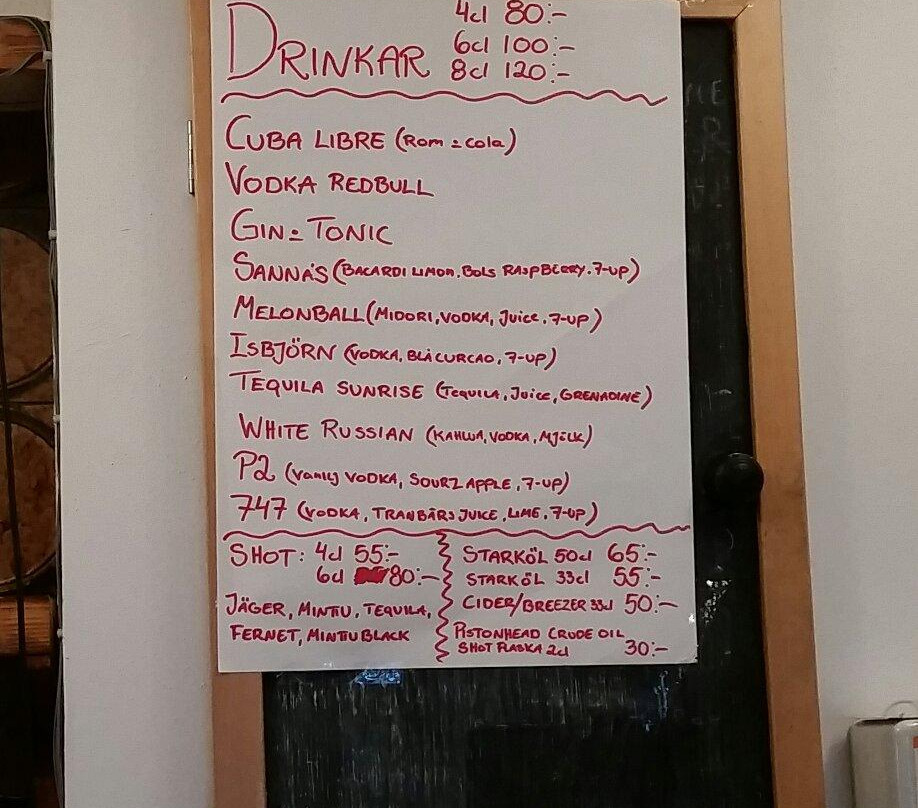 DRINKAR
4cl 80:-
6cl 100:-
8cl 120:-
CUBA LIBRE (Rom & Cola)
VODKA REDBULL
GIN & TONIC
SANNA'S (BACARDI LIMON, BOLS RASPBERRY, 7-UP)
MELONBALL (MIDORI, VODKA, Juice, 7-UP)
ISBJÖRN (VODKA, BLÅ CURCAO, 7-UP)
TEQUILA SUNRISE (Tequila, Juice, GRENADINE)
WHITE RUSSIAN (KAHLUA, VODKA, MJÖLK)
P2 (Vanilj VODKA, SOURZ APPLE, 7-UP)
747 (VODKA, TRANBÄRSJUICE, LIME, 7-UP)
SHOT: 4cl 55:-
6cl 80:-
JÄGER, MINTTU, TEQUILA,
FERNET, MINTTU BLACK
STARKÖL 50cl 65:-
STARKÖL 33cl 55:-
CIDER/BREEZER 33cl 50:-
PISTONHEAD CRUDE OIL
SHOT FLASKA 2cl 30:-